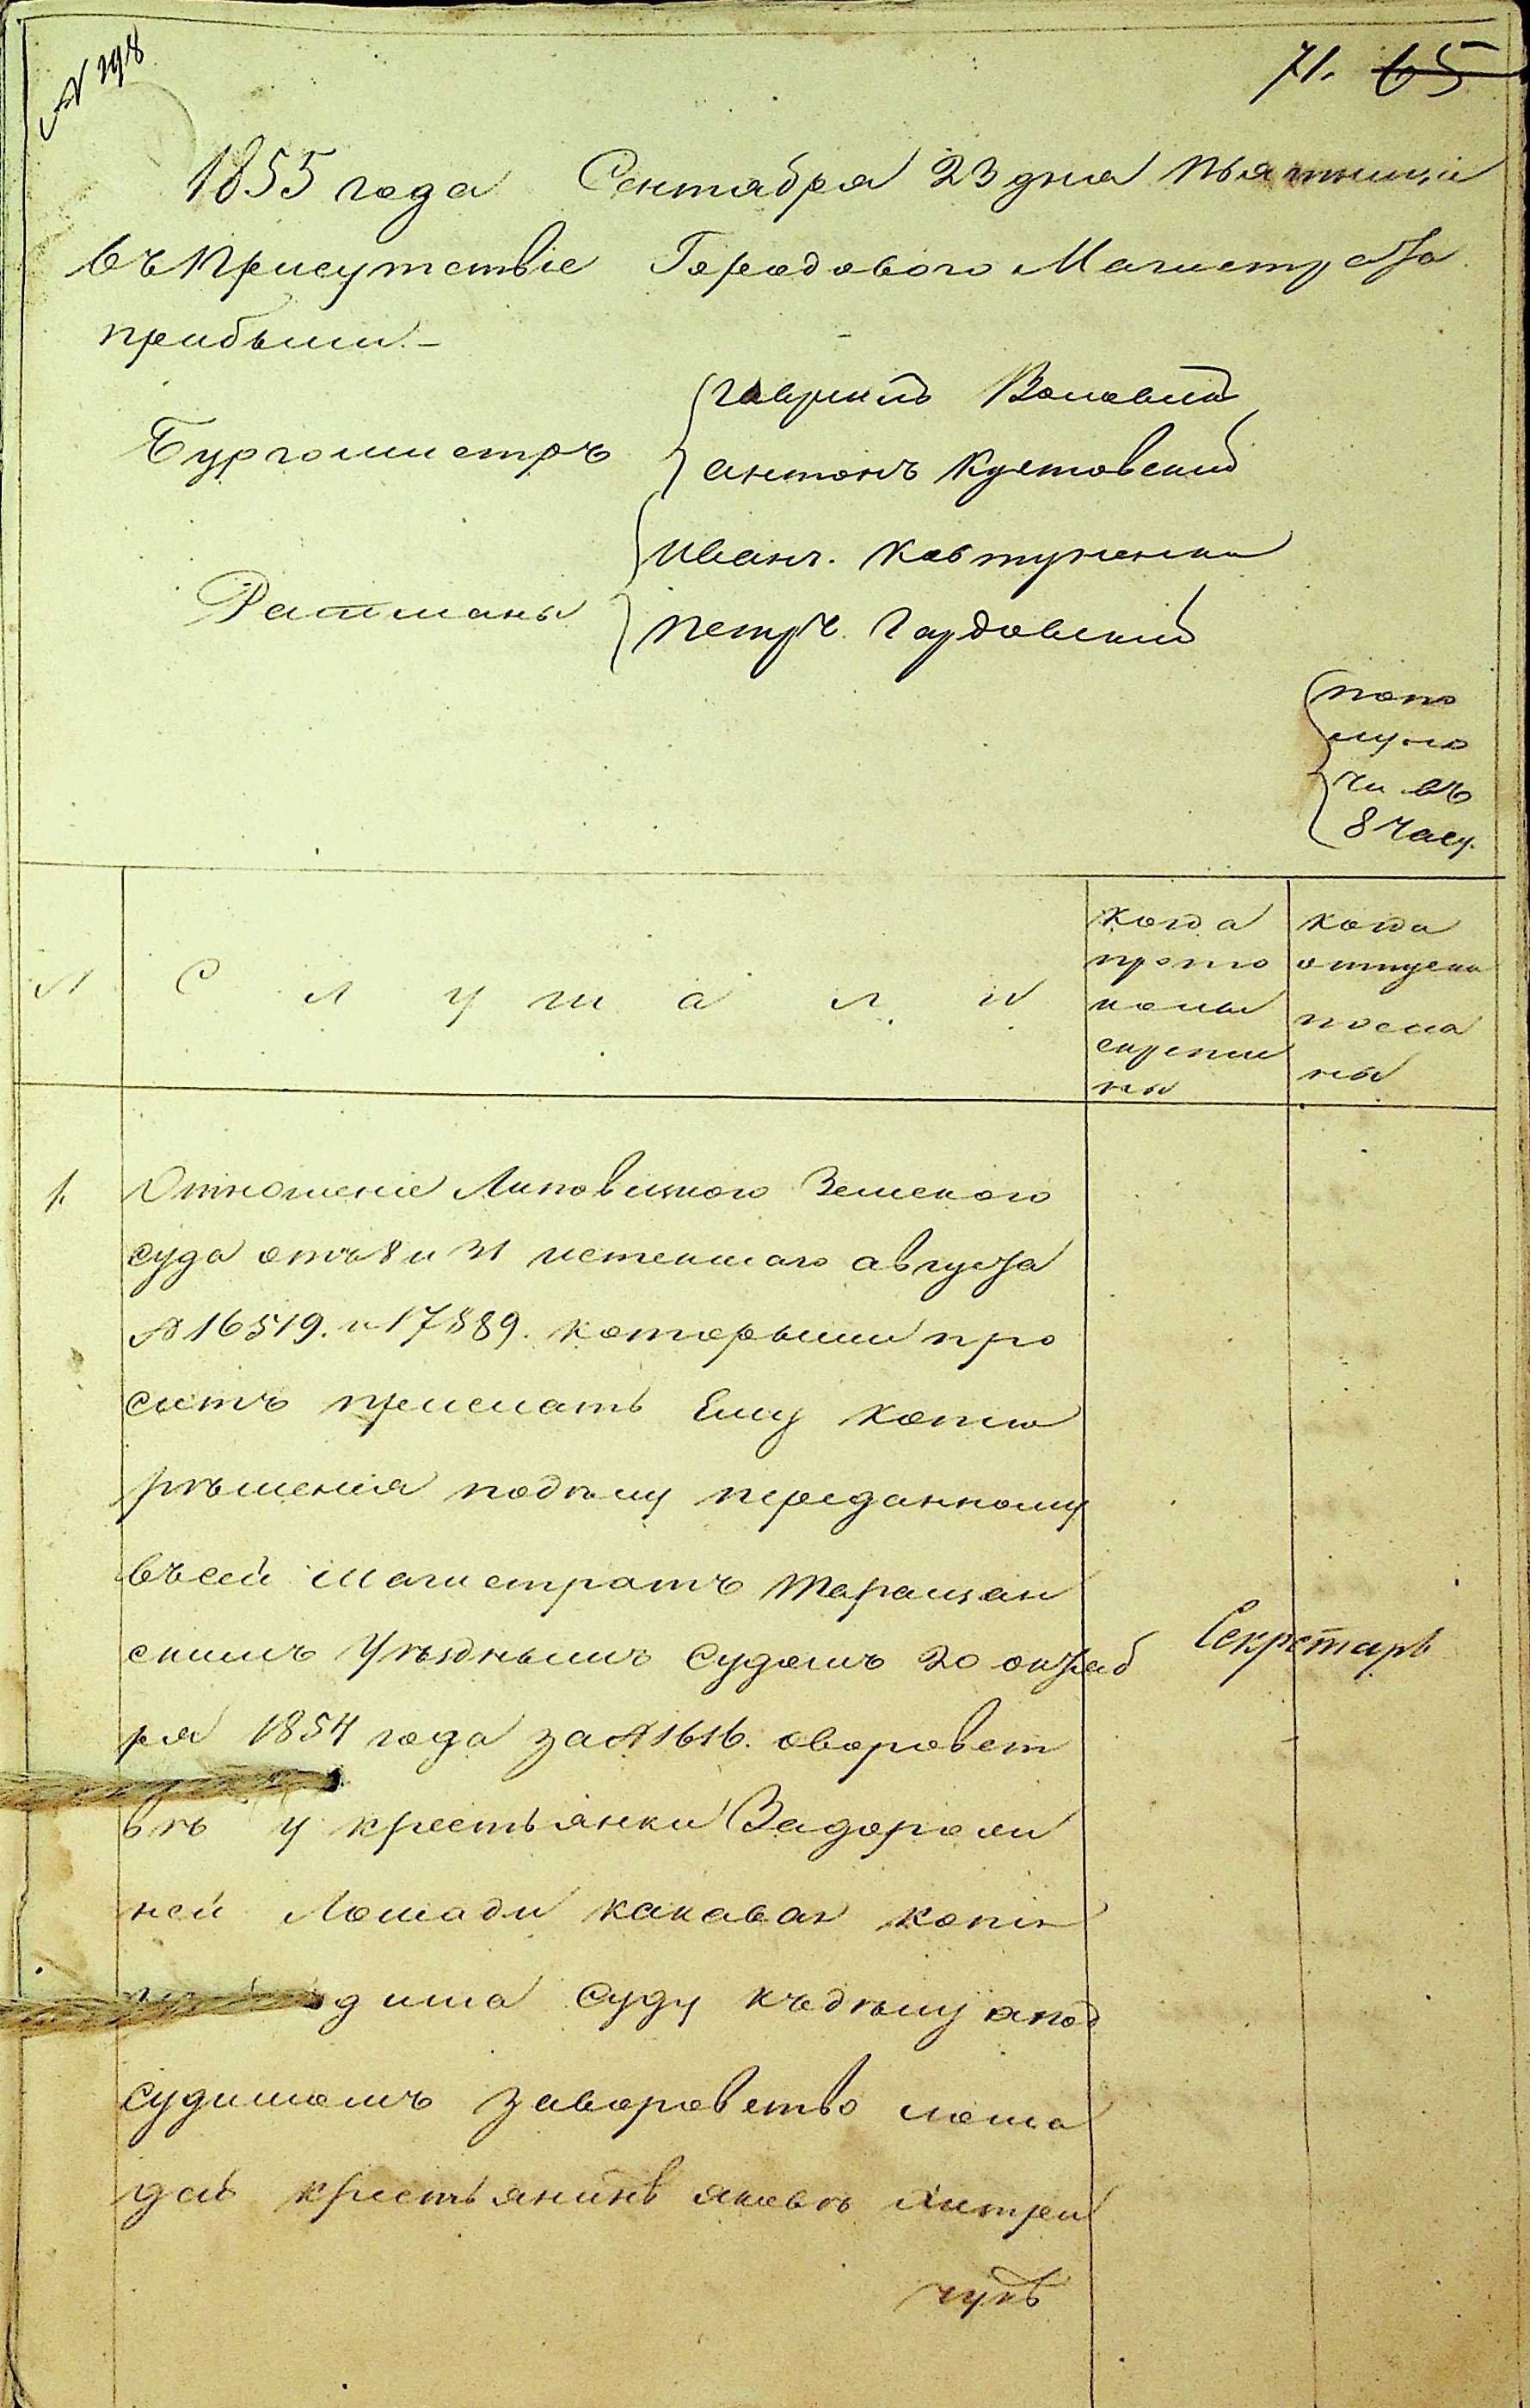 № 198
71. 65
1855 года Сентября 23 дня пятницы
въ присутствіе Городового Магистрата
прибыли.-
Бургомистръ
Гавріилъ
антонъ Култовский
Ратманы
Иванъ. Ковтуненко
Петръ. Гардовский
попо
луно
чи въ
8 часу.
№
С л у ш а л и
когда
прото
колы
скрепле
ны
когда
отпуски
посла
ны
1.
Отношеніе Липовецкого Земского
суда отъ 8 и 31 истекшаго августа
№ 16519. и 17889. которыми про
ситъ прислать Ему копію
рѣшенія подѣлу переданному
въ сей магистратъ Таращан
скимъ Уѣзднымъ Судомъ 20 октяб
ря 1854 года за № 1616. оворовст
вѣ у крестьянки Задорож
ней Лошади каковая копія
суду къдѣлу опод
судимомъ заворовство лоша
дей крестьянинѣ яковѣ
чукѣ
Секретарь